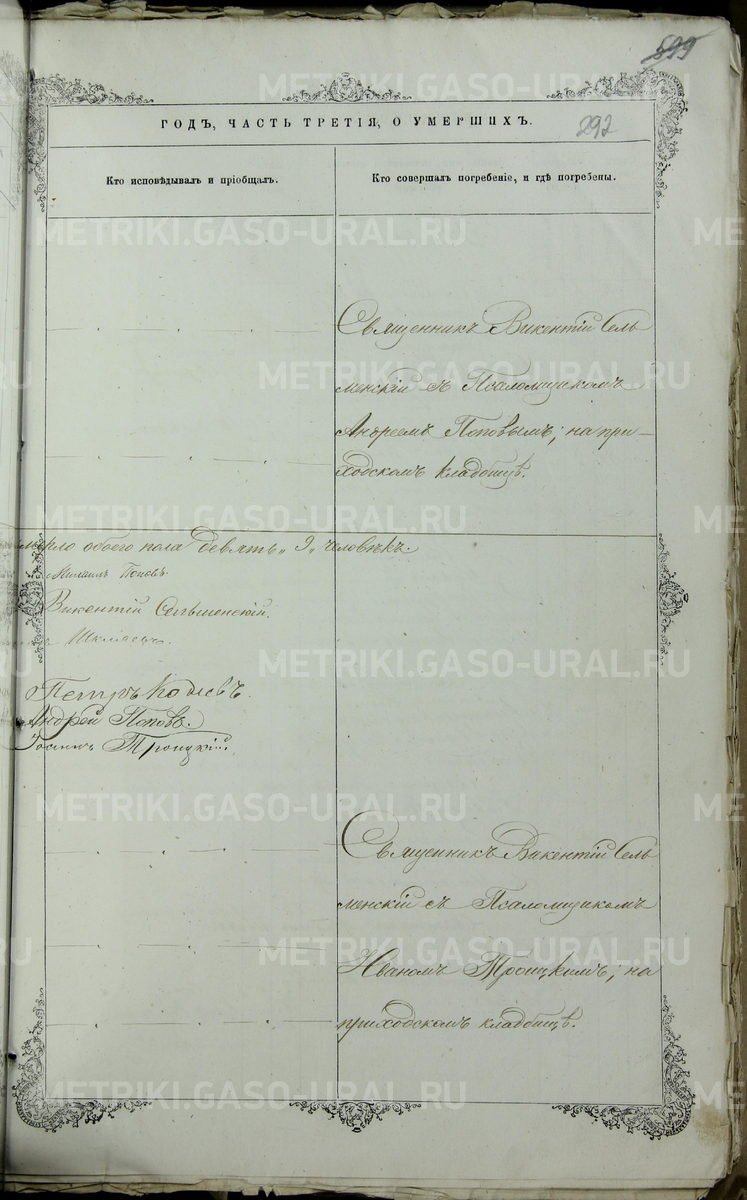 899
292
ГОДЪ, ЧАСТЬ ТРЕТІЯ, О УМЕРШИХЪ.
Кто исповѣдывалъ и пріобщалъ.
Кто совершалъ погребеніе, и гдѣ погребены.
Священникъ Викентій Сель
менскій съ Псаломщикомъ
Андреемъ Поповымъ; на при-
ходскомъ кладбищѣ.
обоего пола девять „9„ человѣкъ.
Михаилъ Поповъ.
Викентій Сельменскій.
Петръ
Андрей Поповъ.
Іоаннъ Троицкій.
Священникъ Викентій Сель
менскій съ Псаломщикомъ
Иваномъ Троицкимъ; на
приходскомъ кладбищѣ.
METRIKI.GASO-URAL.RU